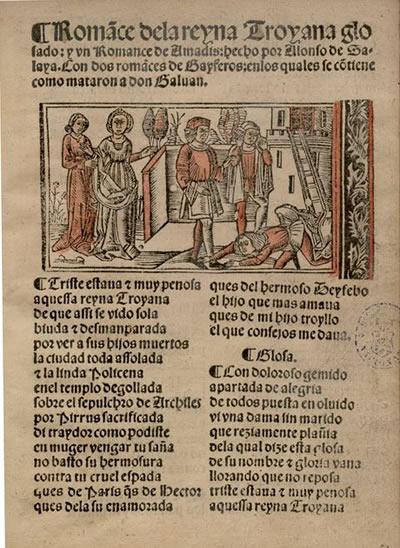 ¶Romãce dela reyna Troyana glo
sado: y vn Romance de Amadis: hecho por Alonso de Sa-
laya. Con dos romãces de Gayferos: enlos quales se cõtiene
como mataron a don Galuan.
¶Triste estaua ⁊ muy penosa
aquessa reyna Troyana
de que assi se vido sola
biuda ⁊ desmanparada
por ver a sus hijos muertos
la ciudad toda assolada
⁊ la linda Policena
enel templo degollada
sobre el sepulchro de Archiles
por Pirrus sacrificada
di traydor como podiste
en muger vengar tu saña
no basto su hermosura
contra tu cruel espada
ques de Paris q̃s de Hector
ques dela su enamorada
ques del hermoso Deyfebo
el hijo que mas amaua
ques de mi hijo troyllo
el que consejos me daua.
¶Glosa.
¶Con doloroso gemido
apartada de alegria
de todos puesta en oluido
vi vna dama sin marido
que reziamente plañia
dela qual dize esta glosa
de su nombre ⁊ gloria vana
llorando que no reposa
triste estaua ⁊ muy penosa
aquessa reyna Troyana